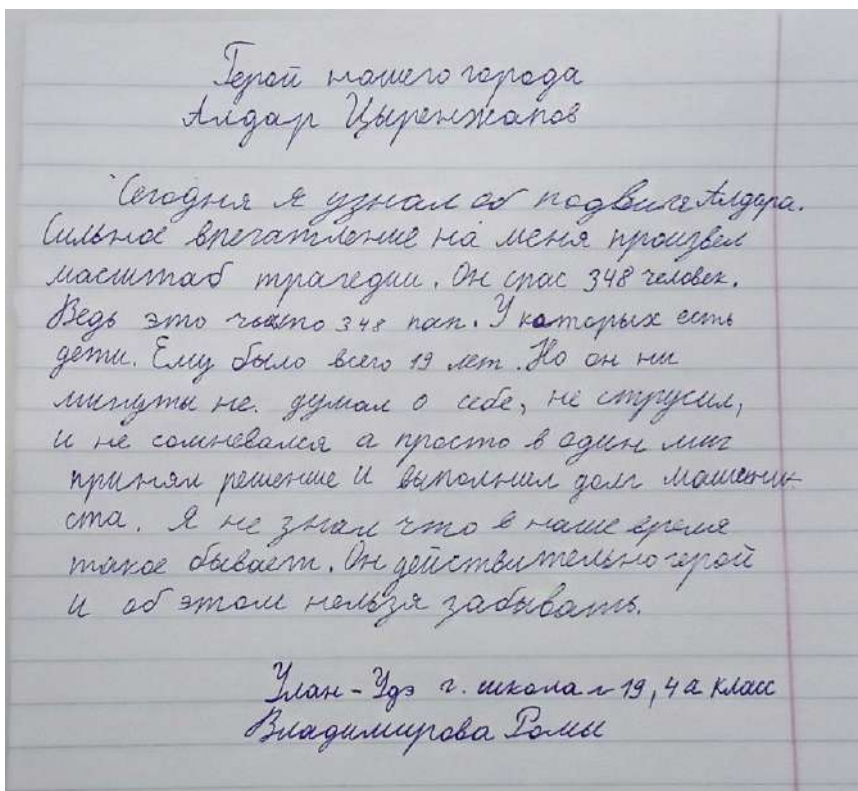 Герой нашего города
Алдар Цыренжапов
Сегодня я узнал об подвиге Алдара.
Сильное впечатление на меня произвел
масштаб трагедии. Он спас 348 человек.
Ведь это чьито 348 пап. У которых есть
дети. Ему было всего 19 лет. Но он ни
минуты не. думал о себе, не струсил,
и не сомневался а просто в один миг
принял решение и выполнил долг машини-
ста. Я не знал что в наше время
такое бывает. Он действительно герой
и об этом нельзя забывать.
Улан-Удэ г. школа № 19, 4а класс
Владимирова Ромы